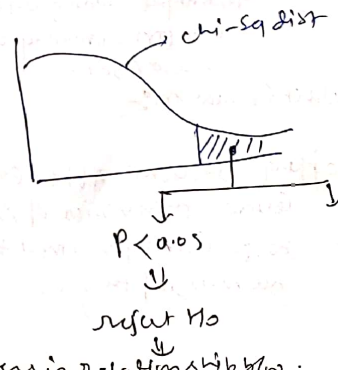 chi-sq dist
P < 0.05
reject H0